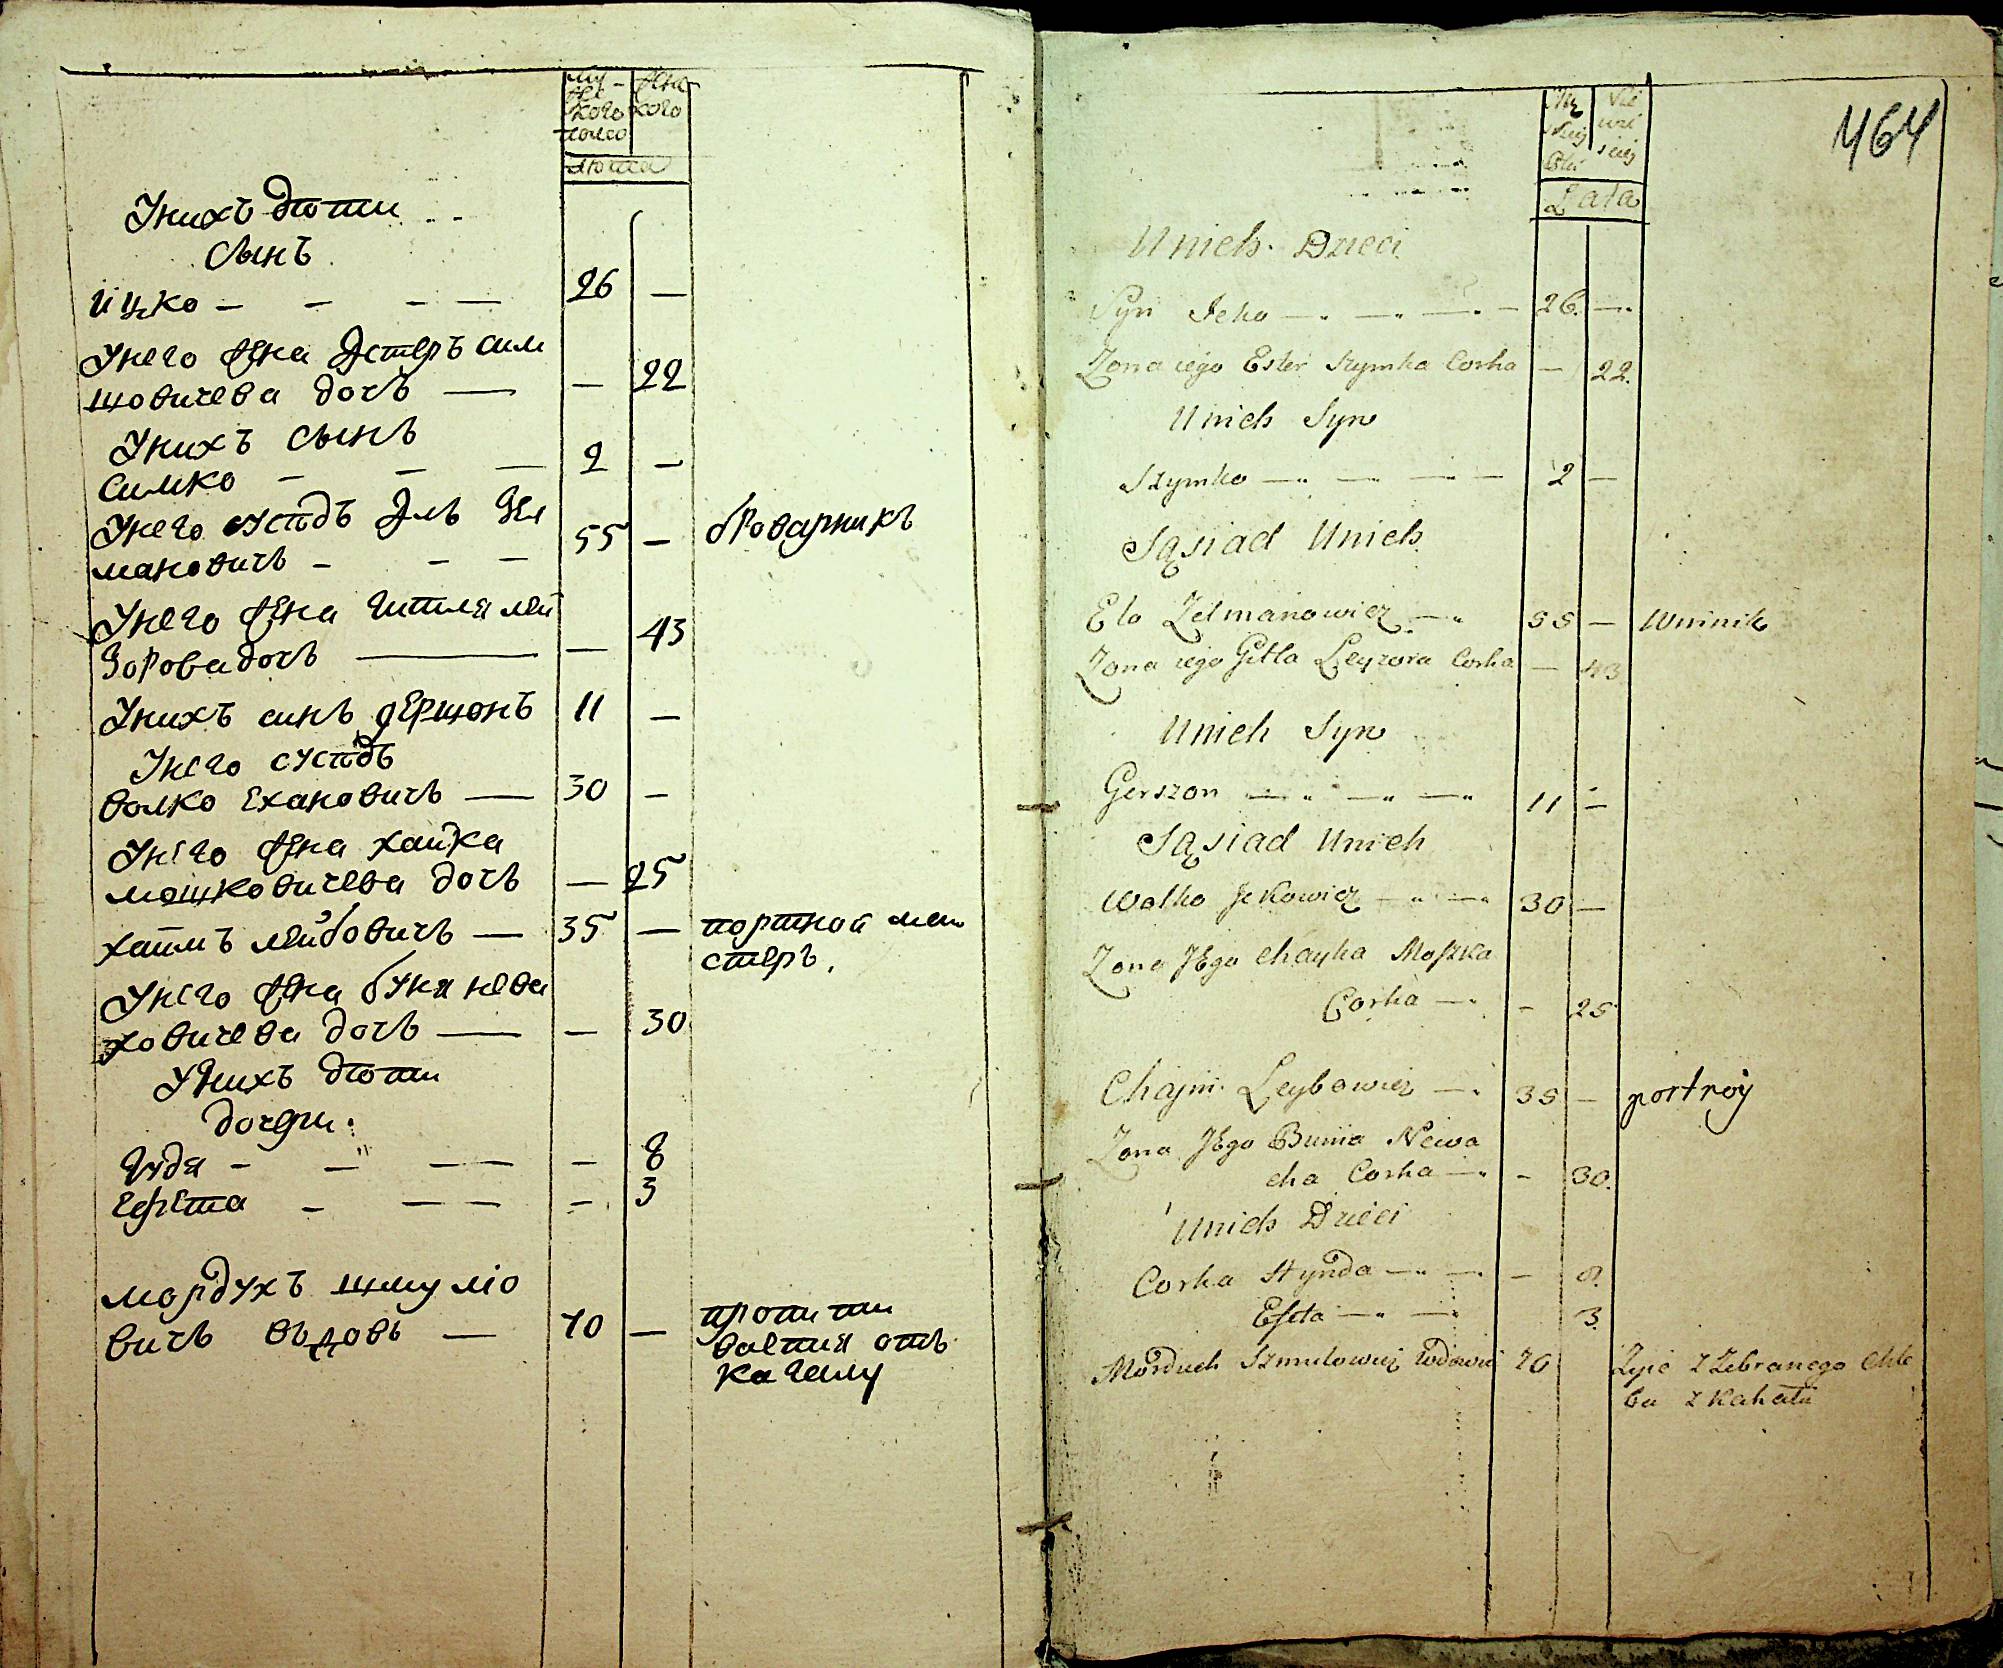 му
жес
кого
полео
жена
кого
люта
Унихъ дѣти
Сынъ
ицко — — — — 26 —
Унего жена Эстеръ сим
шовичева дочь — — 22
Унихъ сынъ
Симко — — — 2 —
Унего сусѣдъ Эль Зел
мановичь — — — 55 — броварникъ
Унего жена гитля леи
Зорова дочь — — 43
Унихъ синъ гершонъ 11 —
Унего сусѣдъ
волко Ехановичь — 30 —
Унего жена хайка
мошковичева дочь — 25
хаимъ лейбовичь — 35 — портной меи
стеръ.
Унего жена буня нева
ховичева дочь — — 30
Унихъ дѣти
дочери
гнда — — — — — 8
ефета — — — — 3
мордухъ шмуло
вичь вдовъ — 70 — пропити
ваетия отъ
кагалу
464
Lata
Unich Dzieci
Syn Icko — — — — 26. —
Zona iego Ester Szymka Corka — 22.
Unich Syn
Szymko — — — — 2 —
Sąsiad Unich
Elo Zelmanowicz — 55 — Winnik
Zona iego Gitla Leyzora Corka — 43
Unich Syn
Gerszon — — — 11 —
Sąsiad Unich
Wolko Jckowicz — — 30 —
Zona JEgo Chayka Moszka
Corka — - 25
Chaim Leybowicz — 35 — portnoy
Zona JEgo Bunia Newa
cha Corka — - 30.
Unich Dzieci
Corka Hynda — — — 8.
Efeta — — 3.
Morduch Szmulowicz Wdowiec 70 Zyie z Zebranego Chle
ba z Kahału